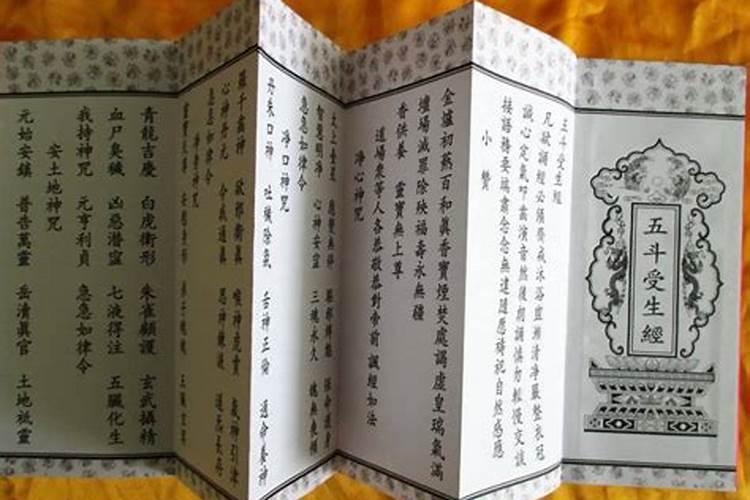 五斗受生經
五斗受生經
凡欲誦經必須齋戒沐浴盥漱清淨嚴整衣冠
誠心定氣叩齒演音然後朗誦慎勿輕慢交談
接語務要端肅念念無違隨愿禱祀自然感應
小贊
金爐初爇百和真香寶煙焚處謁虛皇瑞氣滿
壇場滅罪除殃福壽永無疆
香供養 靈寶無上尊
道場衆等人各恭敬恭對帝前 諷經如法
淨心神咒
太上台星 應變無停 驅邪縛魅 保命護身
智慧明淨 心神安寧 三魂永久 魄無喪傾
急急如律令
淨口神咒
丹朱口神 吐穢除氛 舌神正倫 通命養神
羅千齒神 卻邪衛真 喉神虎賁 氣神引津
心神丹元 令我通真 思神鍊液 道炁長存
急急如律令
淨身神咒
靈寶天尊 安慰身形 弟子魂魄 五臟玄冥
青龍吉慶 白虎衛形 朱雀顧護 玄武攝精
血尸臭穢 凶惡潛寧 七液得注 五臟化生
我持神咒 元亨利貞 急急如律令
安土地神咒
元始安鎮 普告萬靈 岳瀆真官 土地祗靈